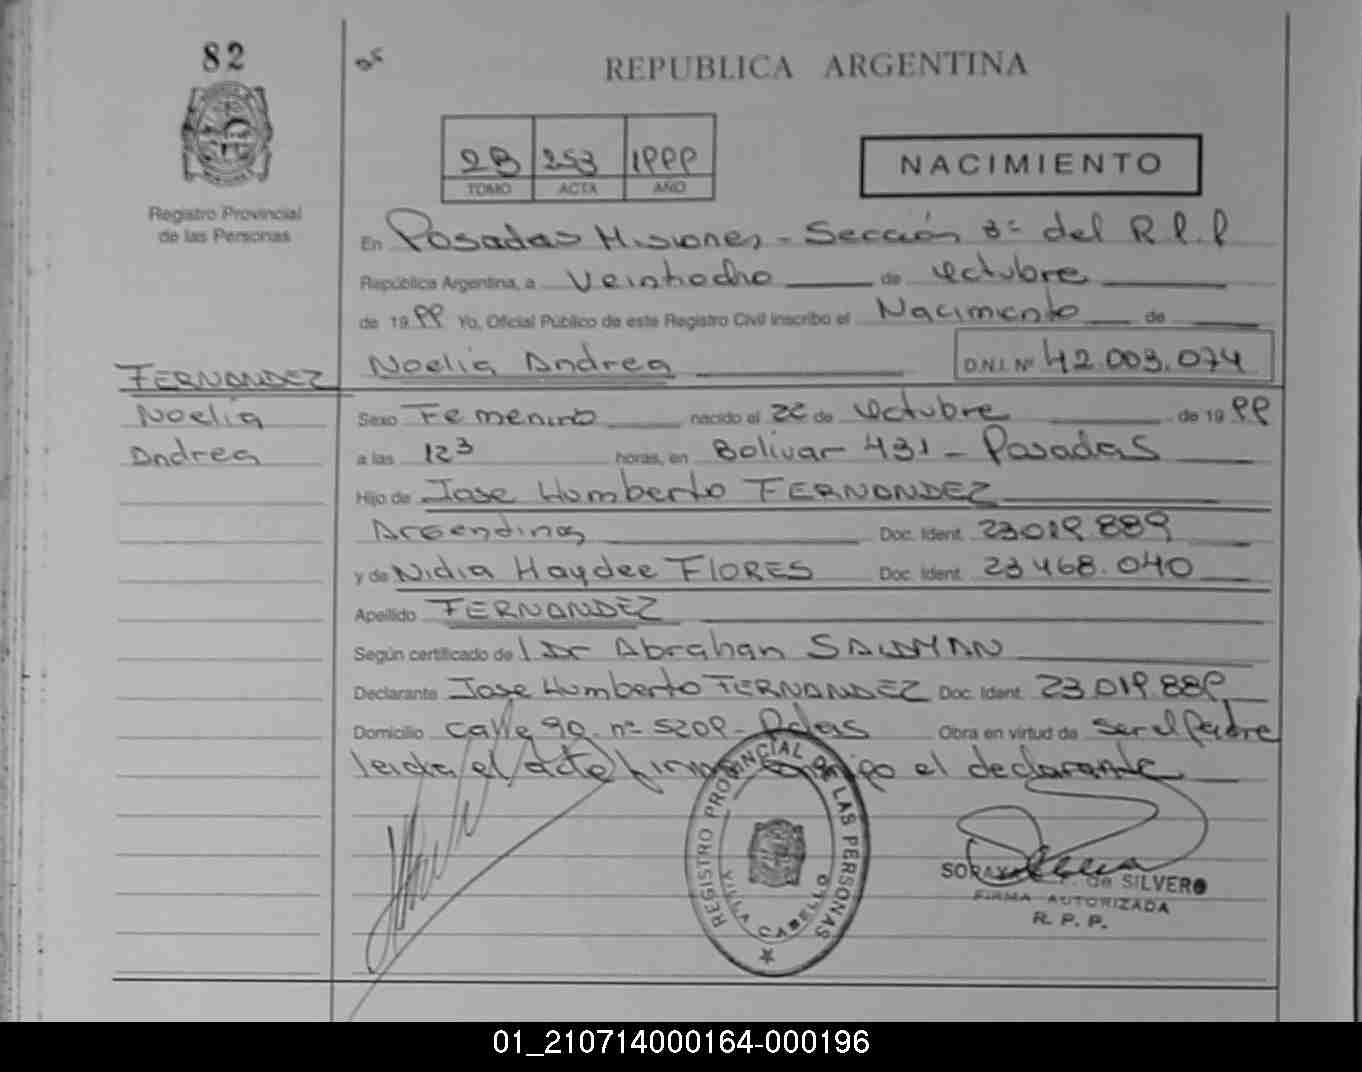 82
Registro Provincial
de las Personas
REPUBLICA ARGENTINA
2B 253 1999
TOMO ACTA AÑO
NACIMIENTO
En Posadas Misiones - Sección 3ª del R.P.P
República Argentina, a Veintiocho de Octubre
de 1999 Yo, Oficial Público de este Registro Civil inscribo el Nacimiento de
Noelia Andrea D.N.I. Nº 42.003.074
FERNANDEZ
Noelia
Andrea
Sexo Femenino nacido el 22 de Octubre de 1999
a las 12 horas, en Bolivar 431 - Posadas
Hijo de Jose Humberto FERNANDEZ
Argentina Doc. Ident. 23.019.889
y de Nidia Haydee FLORES Doc. Ident. 23.468.040
Apellido FERNANDEZ
Según certificado de Dr Abrahan
Declarante Jose Humberto FERNANDEZ Doc. Ident. 23.019.889
Domicilio calle 90 nº 5209 - Pdas Obra en virtud de ser el Padre
leida el acta firma conmigo el declarante
REGISTRO PROVINCIAL DE LAS PERSONAS
VILLA CABELLO
de SILVERO
FIRMA AUTORIZADA
R. P. P.
01_210714000164-000196